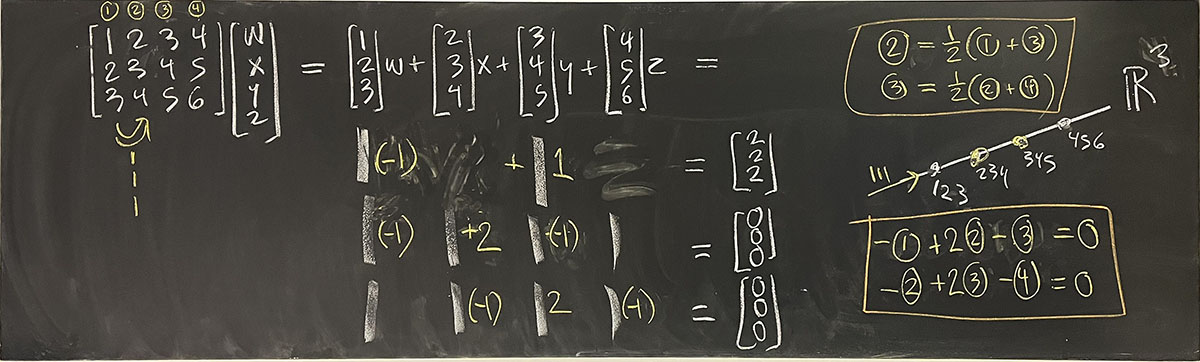 ① ② ③ ④
[1 2 3 4; 2 3 4 5; 3 4 5 6] [w; x; y; z] = [1; 2; 3] w + [2; 3; 4] x + [3; 4; 5] y + [4; 5; 6] z =
(-1) + 1 = [2; 2; 2]
(-1) +2 (-1) = [0; 0; 0]
(-1) 2 (-1) = [0; 0; 0]
② = ½(① + ③)
③ = ½(② + ④)
ℝ³
111 123 234 345 456
-① + 2② - ③ = 0
-② + 2③ - ④ = 0